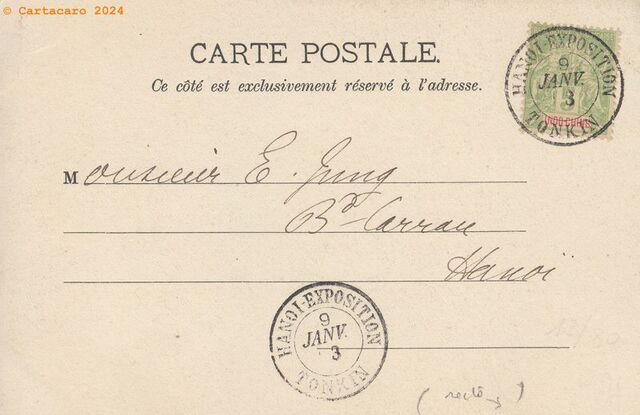 © Cartacaro 2024
CARTE POSTALE.
Ce côté est exclusivement réservé à l'adresse.
HANOI-EXPOSITION
9
JANV.
3
TONKIN
INDO-CHINE
Monsieur E. Jung
Bd Carrau
Hanoï
HANOI-EXPOSITION
9
JANV.
3
TONKIN
(recto)